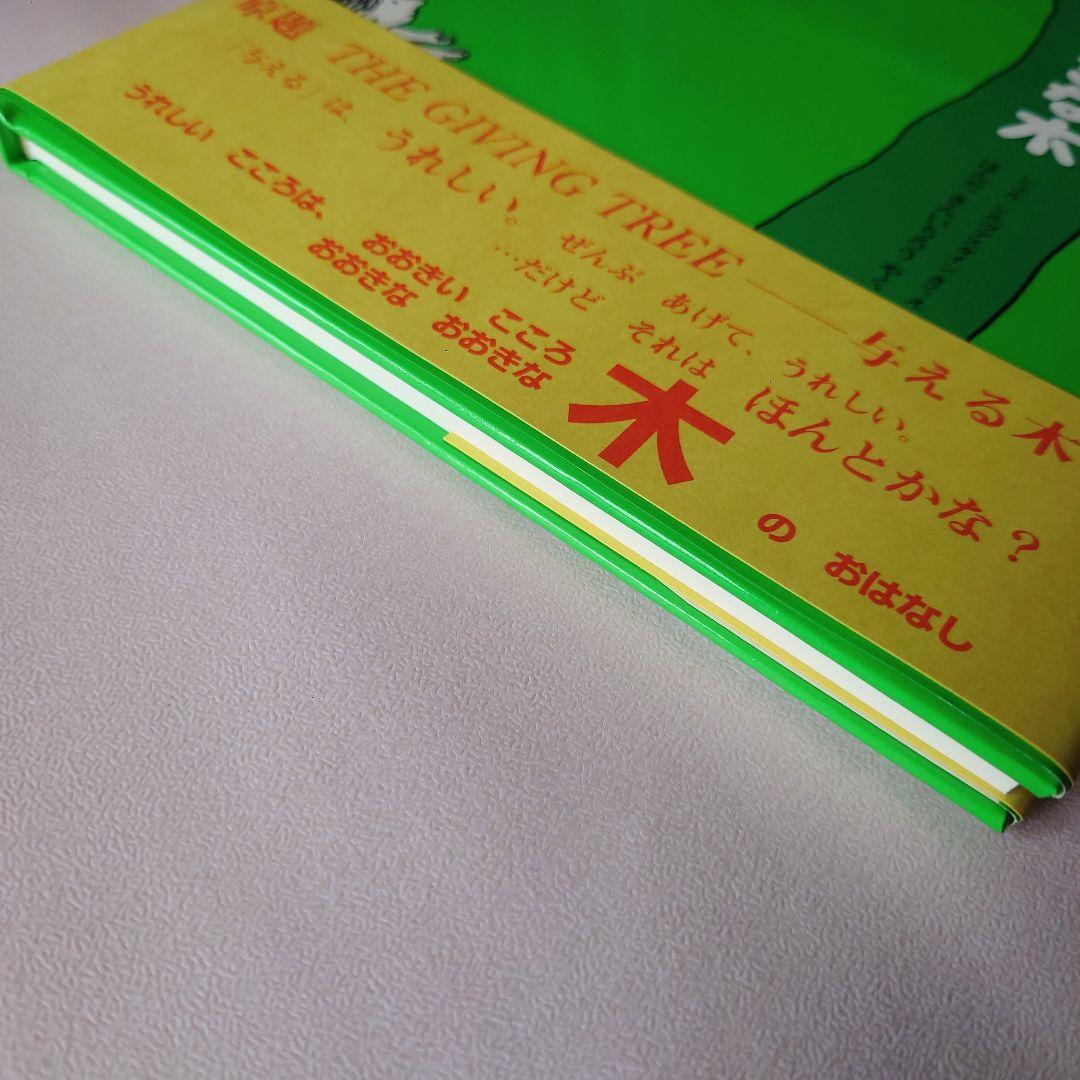 な木
原題 THE GIVING TREE——与える木
「与える」は、うれしい。 ぜんぶ あげて、うれしい。
…だけど それは ほんとかな？
うれしい こころは、 おおきい こころ
おおきな おおきな 木 の おはなし